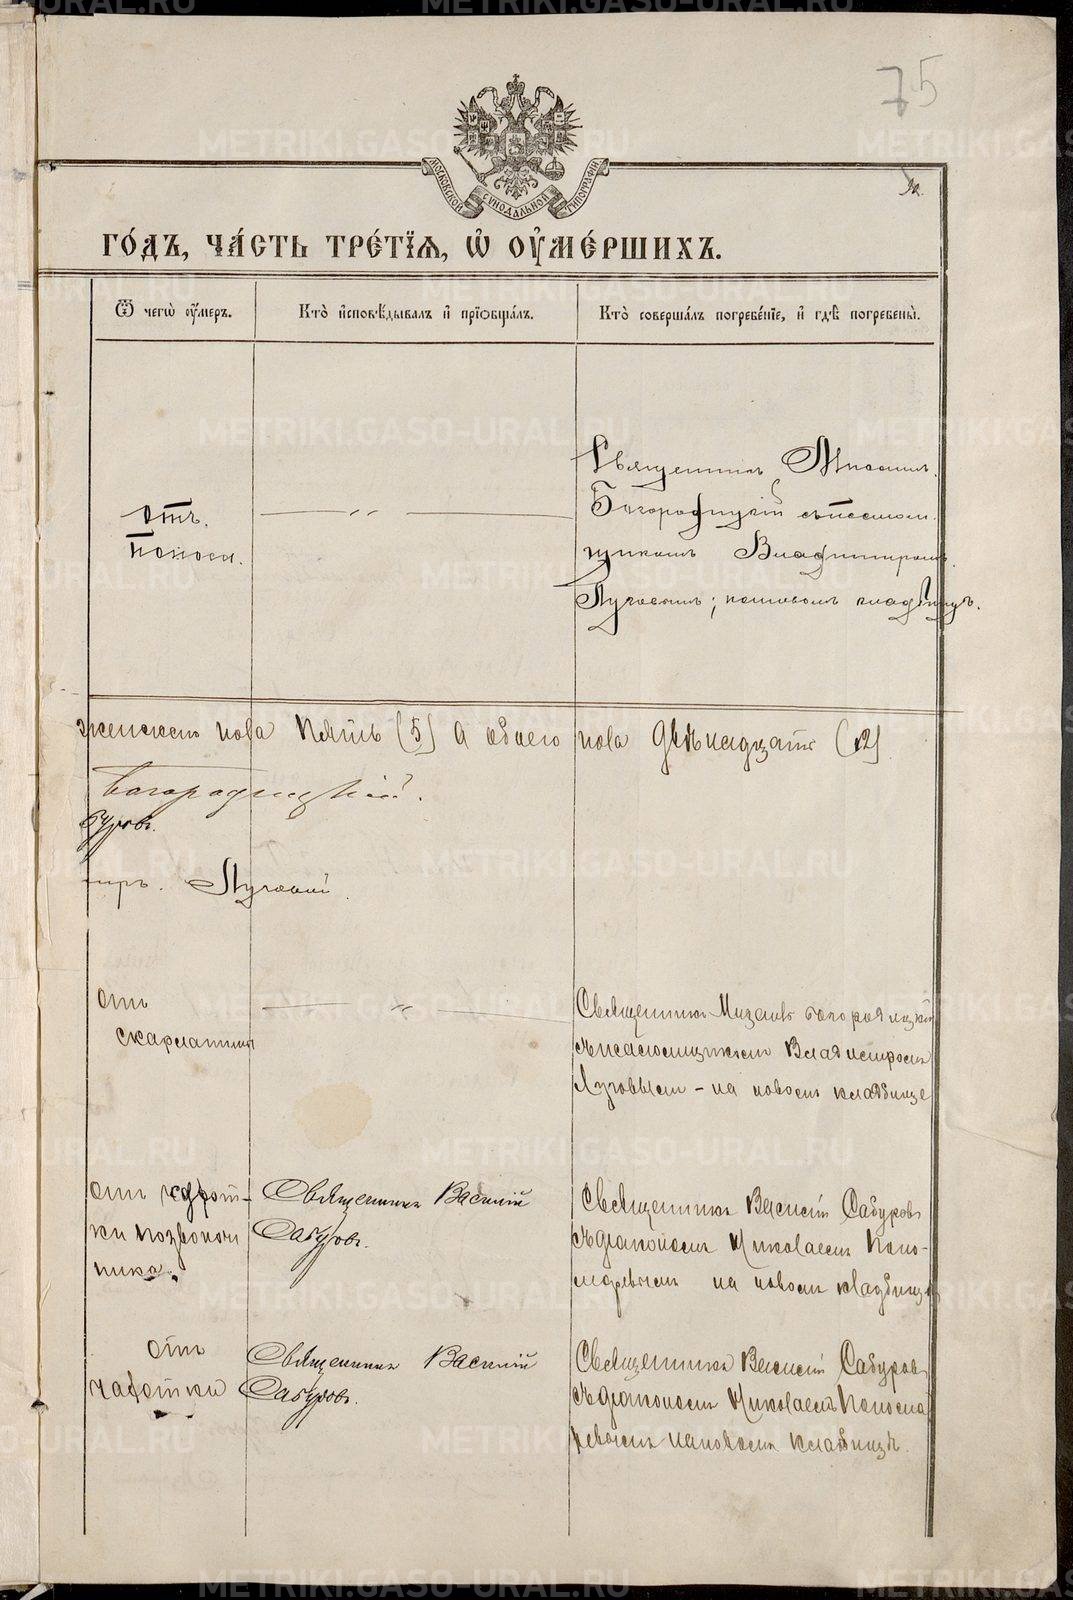 75
МОСКОВСКОЙ СѴНОДАЛЬНОЙ ТИПОГРАФІИ
ГО́ДЪ, ЧА́СТЬ ТРЕ́ТЇѦ, Ѡ҆ ОУ҆МЕ́РШИХЪ.
Ѿ чегѡ̀ оу҆́меръ.
Кто̀ и҆сповѣ́дывалъ и҆ прїѡбща́лъ.
Кто̀ соверша́лъ погребе́нїе, и҆ гдѣ̀ погребены̀.
Отъ
поноса.
Священникъ
Богородицкій съ псаломщикомъ Владимиромъ
Луговымъ; на новомъ кладбищѣ.
женскаго пола пять (5) а обоего пола двѣнадцать (12)
Богородицкій.
буровъ.
миръ. Луговой
Отъ
скарлатины
Священникъ Богородицкій
съ псаломщикомъ Владимиромъ
Луговымъ - на новомъ кладбище
отъ чахот-
ки позвоноч
ника.
Священникъ Василій
Сабуровъ.
Священникъ Василій Сабуровъ
съ діакономъ Николаемъ Поно-
маревымъ на новомъ кладбище
отъ
чахотки
Священникъ Василій
Сабуровъ.
Священникъ Василій Сабуровъ
съ діакономъ Николаемъ Понома
ревымъ на новомъ кладбищѣ.
METRIKI.GASO-URAL.RU